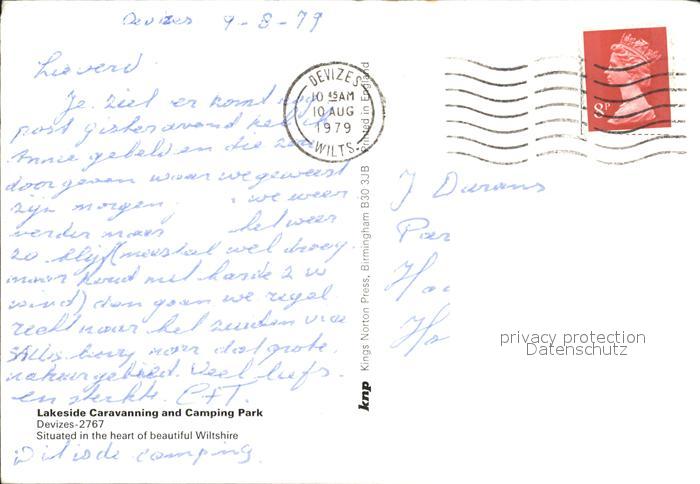 Devizes 9-8-79
Lieverd
Je ziet er komt nog
post gisteravond heb
Annie gebeld en die zou
doorgeven waar we geweest
zijn morgen, we weer
verder naar het weer
zo blijft (meestal wel droog
maar koud met harde Z W
wind) dan gaan we regel
recht naar het zuiden via
naar dat grote
natuurgebied. Veel liefs
en sterkte. C+T.
Lakeside Caravanning and Camping Park
Devizes-2767
Situated in the heart of beautiful Wiltshire
camping.
DEVIZES
10 45AM
10 AUG
1979
WILTS.
8P
knp Kings Norton Press, Birmingham B30 3JB Printed in England
J Durans
privacy protection
Datenschutz